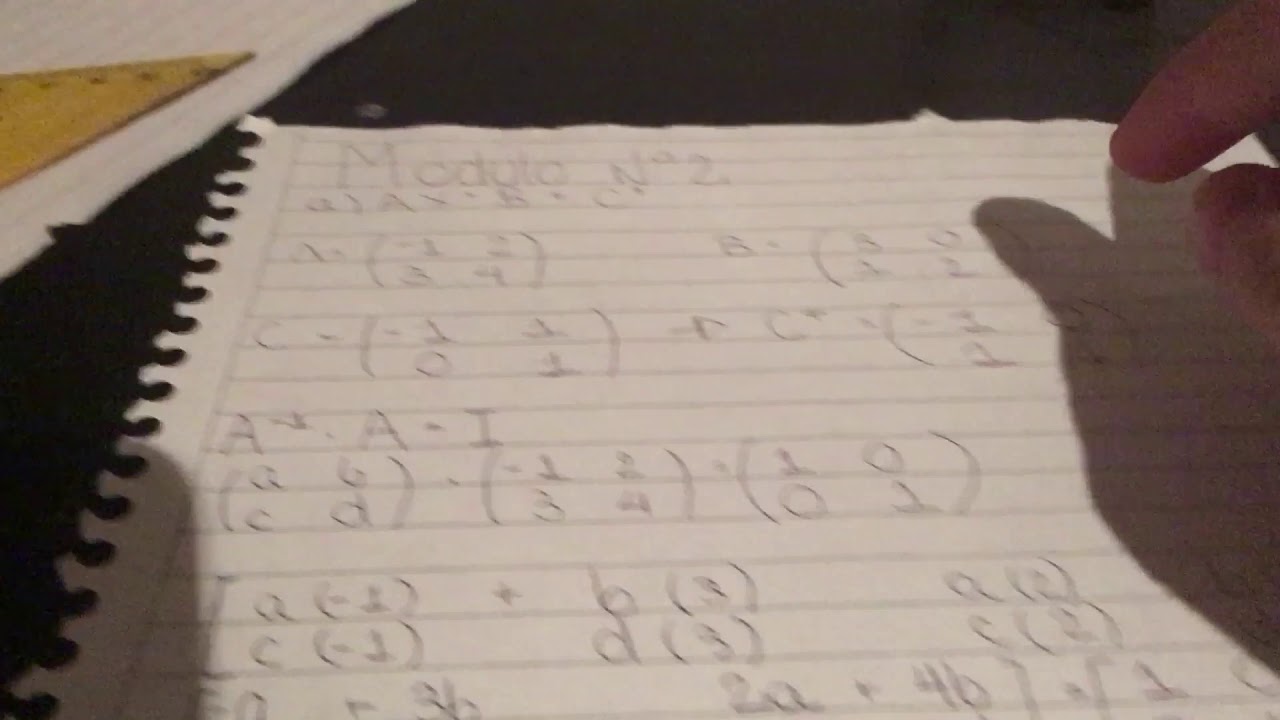 Modulo N° 2
a) AX - B = C^t
A = (-1 2
3 4)
B = (3 0
2)
C = (-1 1
0 1) → C^t = (-1
1
A^-1 . A = I
(a b
c d) . (-1 2
3 4) = (1 0
0 1)
[a(-1) + b(3) a(2)
c(-1) d(3) c(2)
-a + 3b 2a + 4b] = [1